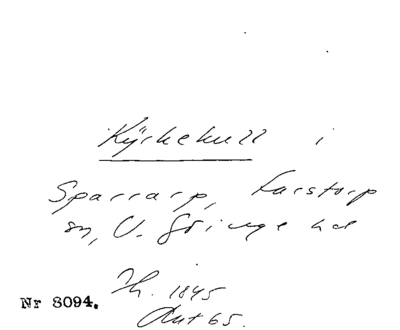 Kyrkekull i
Sparrarp, Farstorp
sn, V. Göinge hd
Th. 1845
Ant 65.
Nr 8094.